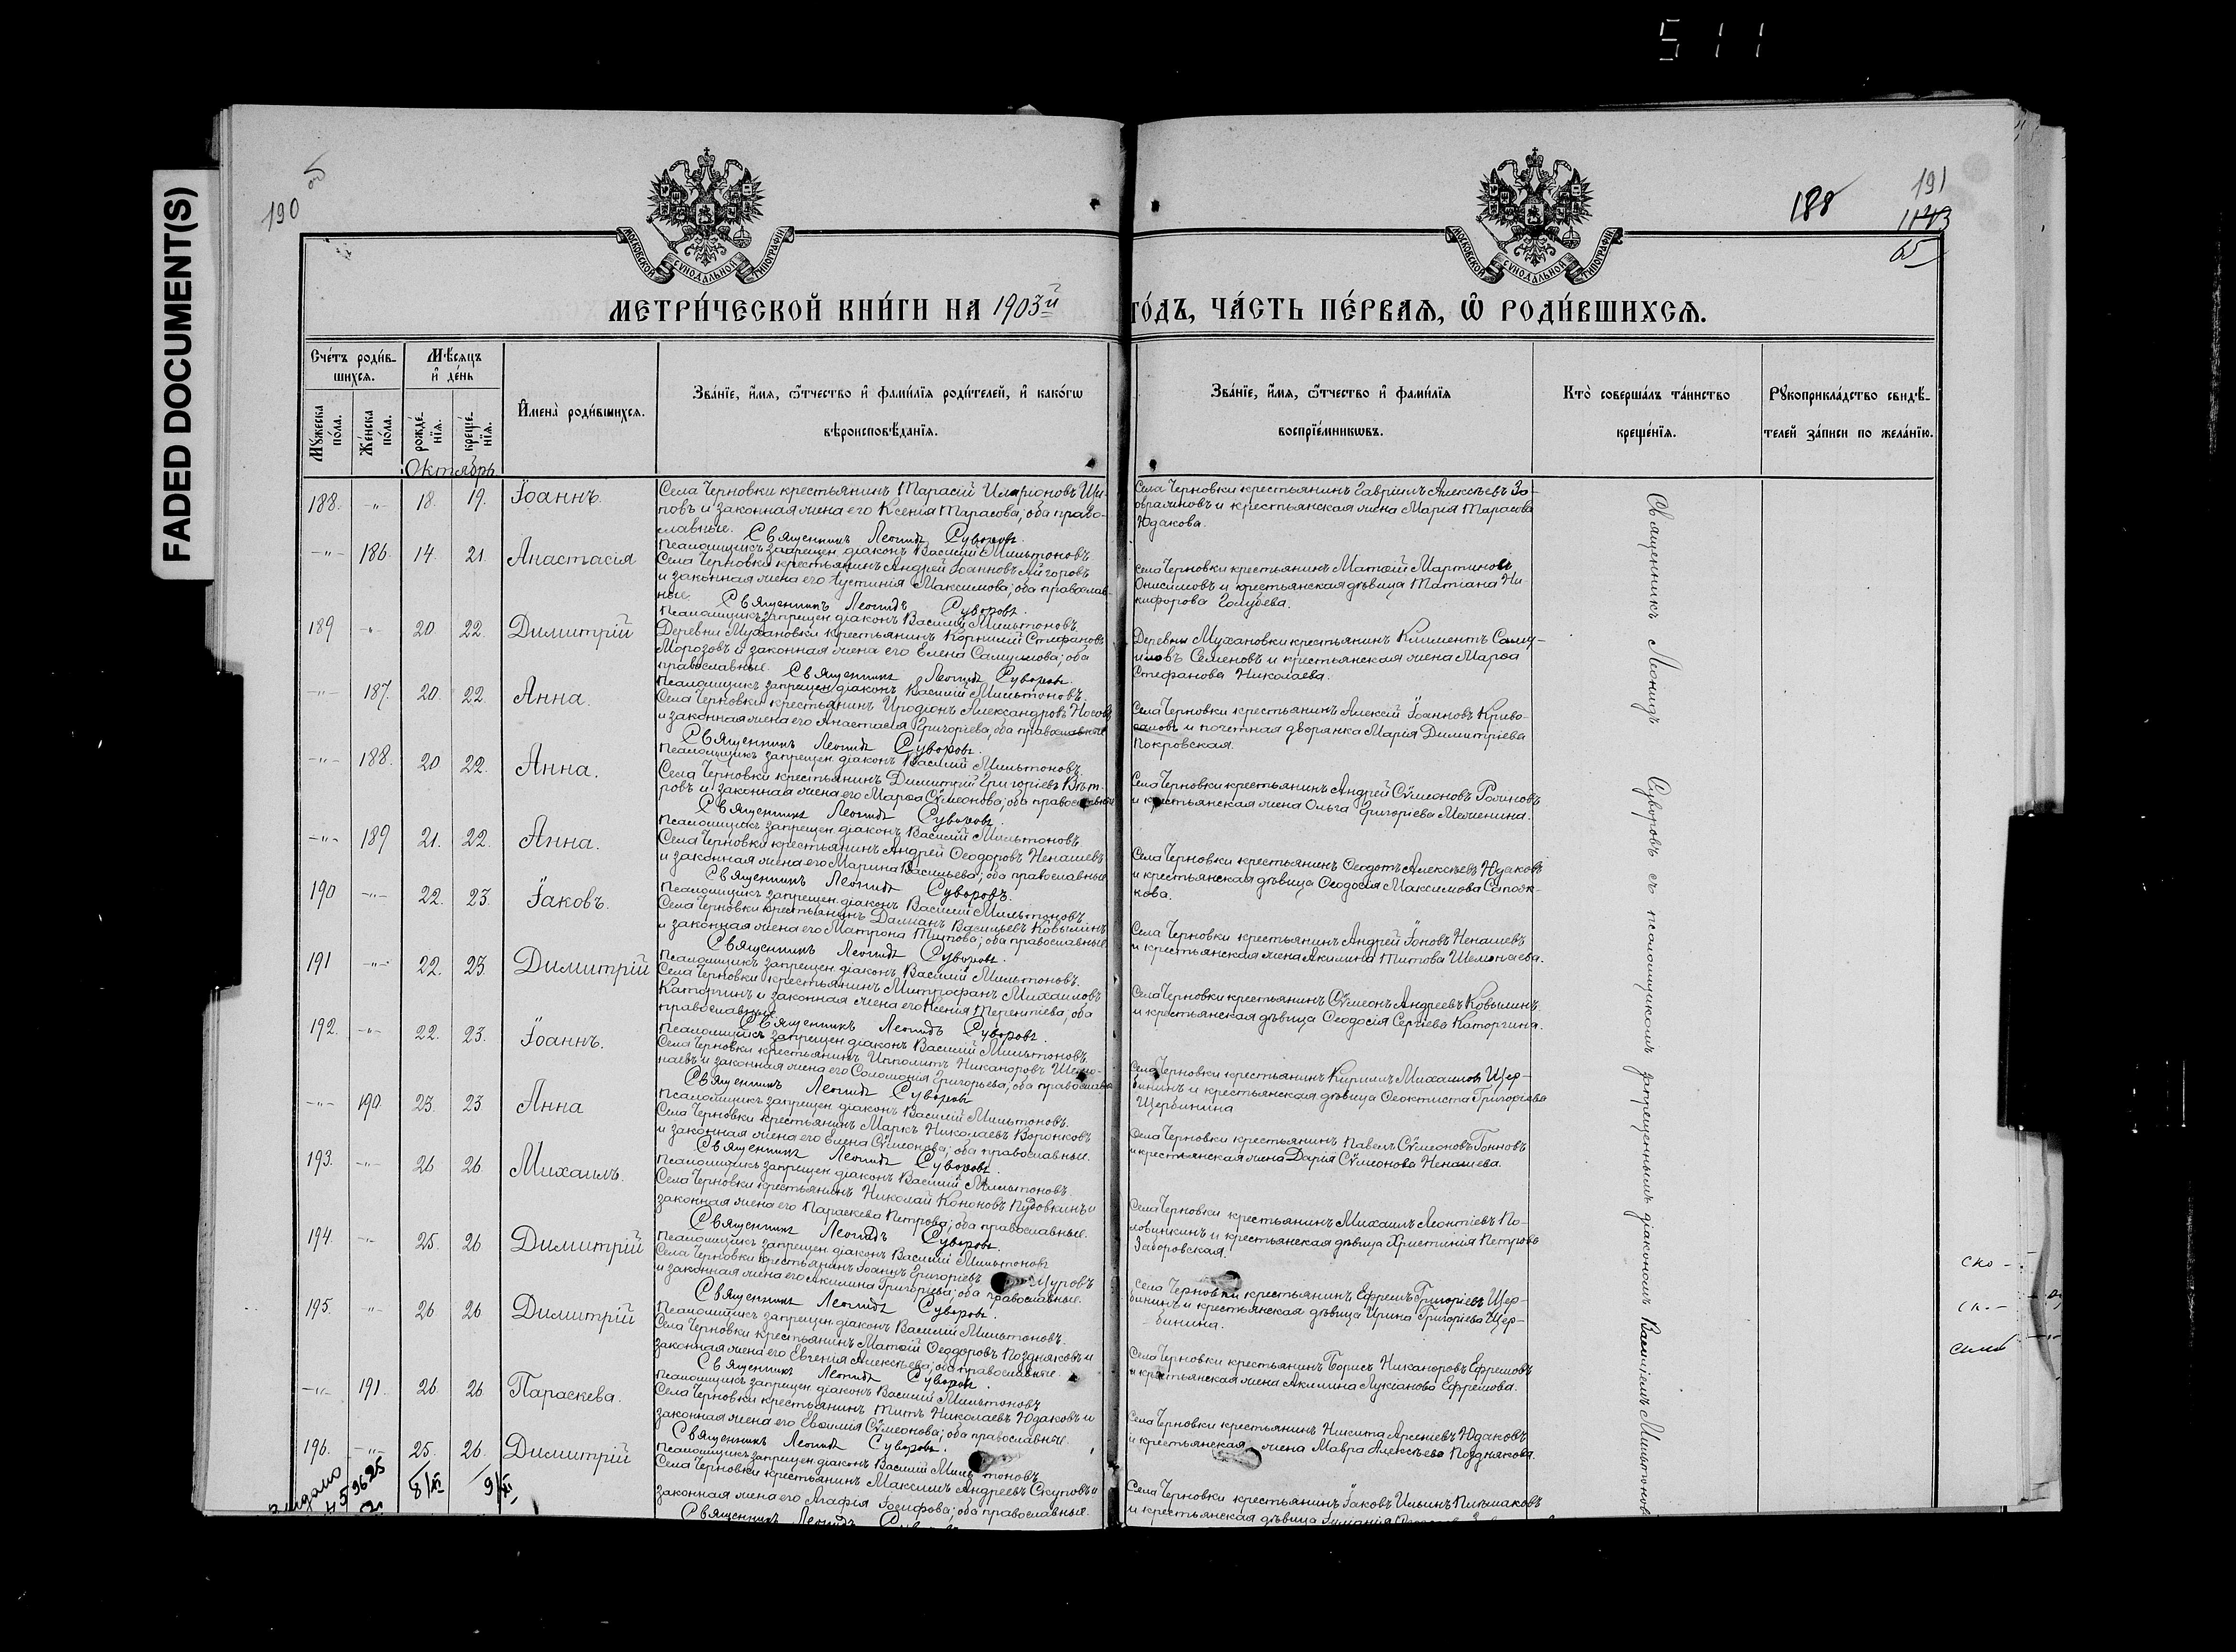 511
FADED DOCUMENT(S)
190
188
191
1143
65
МОСКОВСКОЙ СѴНОДАЛЬНОЙ ТИПОГРАФІИ
МОСКОВСКОЙ СѴНОДАЛЬНОЙ ТИПОГРАФІИ
МЕТРИ́ЧЕСКОЙ КНИ́ГИ НА 1903й
ГО́ДЪ, ЧА́СТЬ ПЕ́РВАѦ, Ѽ РОДИ́ВШИХСѦ.
Сче́тъ роди́в-
шихся.
Мѣ́сяцъ
и де́нь
Мꙋжеска по́ла.
Же́нска по́ла.
рожде́-нїя.
креще́-нїя.
Имена̀ роди́вшихся.
Зва́нїе, и́мя, ѻ҆́тчество и фами́лїя роди́телей, и како́гѡ
вѣроисповѣ́данїя.
Зва́нїе, и́мя, ѻ҆́тчество и фами́лїя
воспрїе́мникѡвъ.
Кто̀ соверша́лъ та́инство
креще́нїя.
Рꙋкоприкла́дство свидѣ́-
телей за́писи по жела́нїю.
Октябрь
188. -„- 18. 19. Іоаннъ.
Села Черновки крестьянинъ Тарасій Иларіоновъ Щи-
повъ и законная жена его Ксенія Тарасова; оба право-
славные. Священникъ Леонидъ Суворовъ.
Псаломщикъ запрещен. діаконъ Василій Мильтоновъ
Села Черновки крестьянинъ Гавріилъ Алексѣевъ За-
вражновъ и крестьянская жена Марія Тарасова
Юдакова.
-„- 186. 14. 21. Анастасія
Села Черновки крестьянинъ Андрей Іоанновъ Айгоровъ
и законная жена его Іустинія Максимова; оба православ-
ные. Священникъ Леонидъ Суворовъ.
Псаломщикъ запрещен. діаконъ Василій Мильтоновъ.
Села Черновки крестьянинъ Матѳій Мартиновъ
Онисимовъ и крестьянская дѣвица Татіана Ни-
кифорова Голубева.
189 -„- 20 22. Димитрій
Деревни Мухановки крестьянинъ Корнилій Стефановъ
Морозовъ и законная жена его Елена Самуилова; оба
православные. Священникъ Леонидъ Суворовъ.
Псаломщикъ запрещен. діаконъ Василій Мильтоновъ.
Деревни Мухановки крестьянинъ Климентъ Саму-
иловъ Семеновъ и крестьянская жена Марѳа
Стефанова Николаева.
-„- 187. 20. 22 Анна.
Села Черновки крестьянинъ Иродіонъ Александровъ Носовъ
и законная жена его Анастасія Григоріева; оба православные
Священникъ Леонидъ Суворовъ.
Псаломщикъ запрещен. діаконъ Василій Мильтоновъ.
Села Черновки крестьянинъ Алексій Іоанновъ Криво-
и почетная дворянка Марія Димитріева
Покровская.
-„- 188. 20 22. Анна.
Села Черновки крестьянинъ Димитрій Григоріевъ Вѣт-
ровъ и законная жена его Марѳа Сѵмеонова; оба православные
Священникъ Леонидъ Суворовъ.
Псаломщикъ запрещен. діаконъ Василій Мильтоновъ
Села Черновки крестьянинъ Андрей Сѵмеоновъ
и крестьянская жена Ольга Григоріева
-„- 189 21. 22. Анна.
Села Черновки крестьянинъ Андрей Ѳеодоровъ Ненашевъ
и законная жена его Марина Васильева; оба православные
Священникъ Леонидъ Суворовъ.
Псаломщикъ запрещен. діаконъ Василій Мильтоновъ.
Села Черновки крестьянинъ Ѳеодотъ Алексѣевъ Юдаковъ
и крестьянская дѣвица Ѳеодосія Максимова Сапож-
кова.
190 -„- 22. 23. Іаковъ.
Села Черновки крестьянинъ Даміанъ Васильевъ Ковылинъ
и законная жена его Матрона Титова; оба православные
Священникъ Леонидъ Суворовъ.
Псаломщикъ запрещен. діаконъ Василій Мильтоновъ.
Села Черновки крестьянинъ Андрей Іоновъ Ненашевъ
и крестьянская жена Акилина Титова Шелонаева.
191 -„- 22. 23 Димитрій
Села Черновки крестьянинъ Митрофанъ Михаиловъ
Каторгинъ и законная жена его Ксенія Терентіева, оба
православные. Священникъ Леонидъ Суворовъ.
Псаломщикъ запрещен. діаконъ Василій Мильтоновъ.
Села Черновки крестьянинъ Сѵмеонъ Андреевъ Ковылинъ
и крестьянская дѣвица Ѳеодосія Сергіева Каторгина.
192. -„- 22. 23. Іоаннъ.
Села Черновки крестьянинъ Ипполитъ Никаноровъ Шело-
наевъ и законная жена его Соломонія Григорьева; оба православные
Священникъ Леонидъ Суворовъ
Псаломщикъ запрещен. діаконъ Василій Мильтоновъ.
Села Черновки крестьянинъ Кириллъ Михаиловъ Щер-
бининъ и крестьянская дѣвица Ѳеоктиста Григоріева
Щербинина
-„- 190 23. 23 Анна
Села Черновки крестьянинъ Маркъ Николаевъ Воронковъ
и законная жена его Елена Сѵмеонова; оба православные.
Священникъ Леонидъ Суворовъ.
Псаломщикъ запрещен. діаконъ Василій Мильтоновъ.
Села Черновки крестьянинъ Павелъ Сѵмеоновъ
и крестьянская жена Дарія Сѵмеонова Ненашева.
193. -„- 26 26 Михаилъ.
Села Черновки крестьянинъ Николай Кононовъ Пудовкинъ и
законная жена его Параскева Петрова; оба православные.
Священникъ Леонидъ Суворовъ.
Псаломщикъ запрещен. діаконъ Василій Мильтоновъ
Села Черновки крестьянинъ Михаилъ Леонтіевъ По-
ловинкинъ и крестьянская дѣвица Христинія Петрова
Заборовская.
194. -„- 25. 26 Димитрій
Села Черновки крестьянинъ Іоаннъ Григоріевъ
и законная жена его Акилина Григоріева; оба православные.
Священникъ Леонидъ Суворовъ.
Псаломщикъ запрещен. діаконъ Василій Мильтоновъ.
Села Черновки крестьянинъ Ефремъ Григоріевъ Щер-
бининъ и крестьянская дѣвица Ирина Григоріева Щер-
бинина.
195. -„- 26 26 Димитрій
Села Черновки крестьянинъ Матѳій Ѳеодоровъ Поздняковъ и
законная жена его Евгенія Алексѣева; оба православные.
Священникъ Леонидъ Суворовъ.
Псаломщикъ запрещен. діаконъ Василій Мильтоновъ
Села Черновки крестьянинъ Борисъ Никаноровъ Ефремовъ
и крестьянская жена Акилина Лукіанова Ефремова.
-„- 191. 26. 26 Параскева.
Села Черновки крестьянинъ Титъ Николаевъ Юдаковъ и
законная жена его Евѳимія Сѵмеонова; оба православные.
Священникъ Леонидъ Суворовъ.
Псаломщикъ запрещен. діаконъ Василій Мильтоновъ
Села Черновки крестьянинъ Никита Арсеніевъ Юдаковъ
и крестьянская жена Мавра Алексѣева Позднякова.
196. -„- 25. 26. Димитрій
Села Черновки крестьянинъ Максимъ Андреевъ Скуповъ и
законная жена его Агафія Іосифова; оба православные.
Священникъ Леонидъ
Села Черновки крестьянинъ Іаковъ Ильинъ
и крестьянская дѣвица
8/XI 9/XI
Священникъ Леонидъ Суворовъ съ псаломщикомъ запрещеннымъ діакономъ Василіемъ Мильтоновымъ